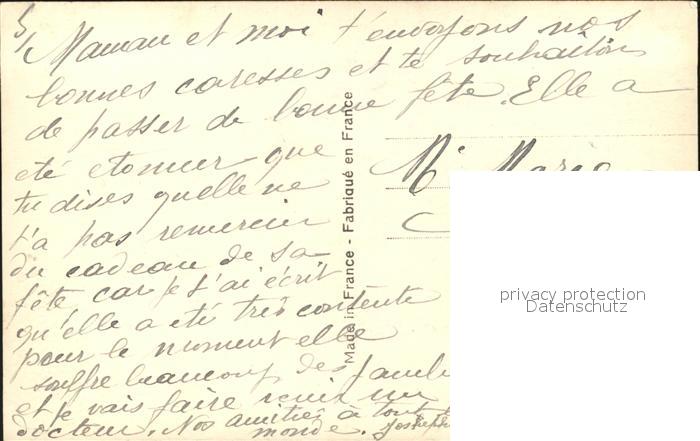 Maman et moi t'envoyons nos
bonnes caresses et te souhaitons
de passer de bonne fête. Elle a
eté etonner que
tu dises quelle ne
t'a pas remercier
du cadeau de sa
fête car je t'ai écrit
qu'elle a eté très contente
pour le moment elle
souffre beaucoup des jamb
et je vais faire venir un
docteur. Nos amitiés à tout
monde. Joseph
Made in France - Fabriqué en France
privacy protection
Datenschutz